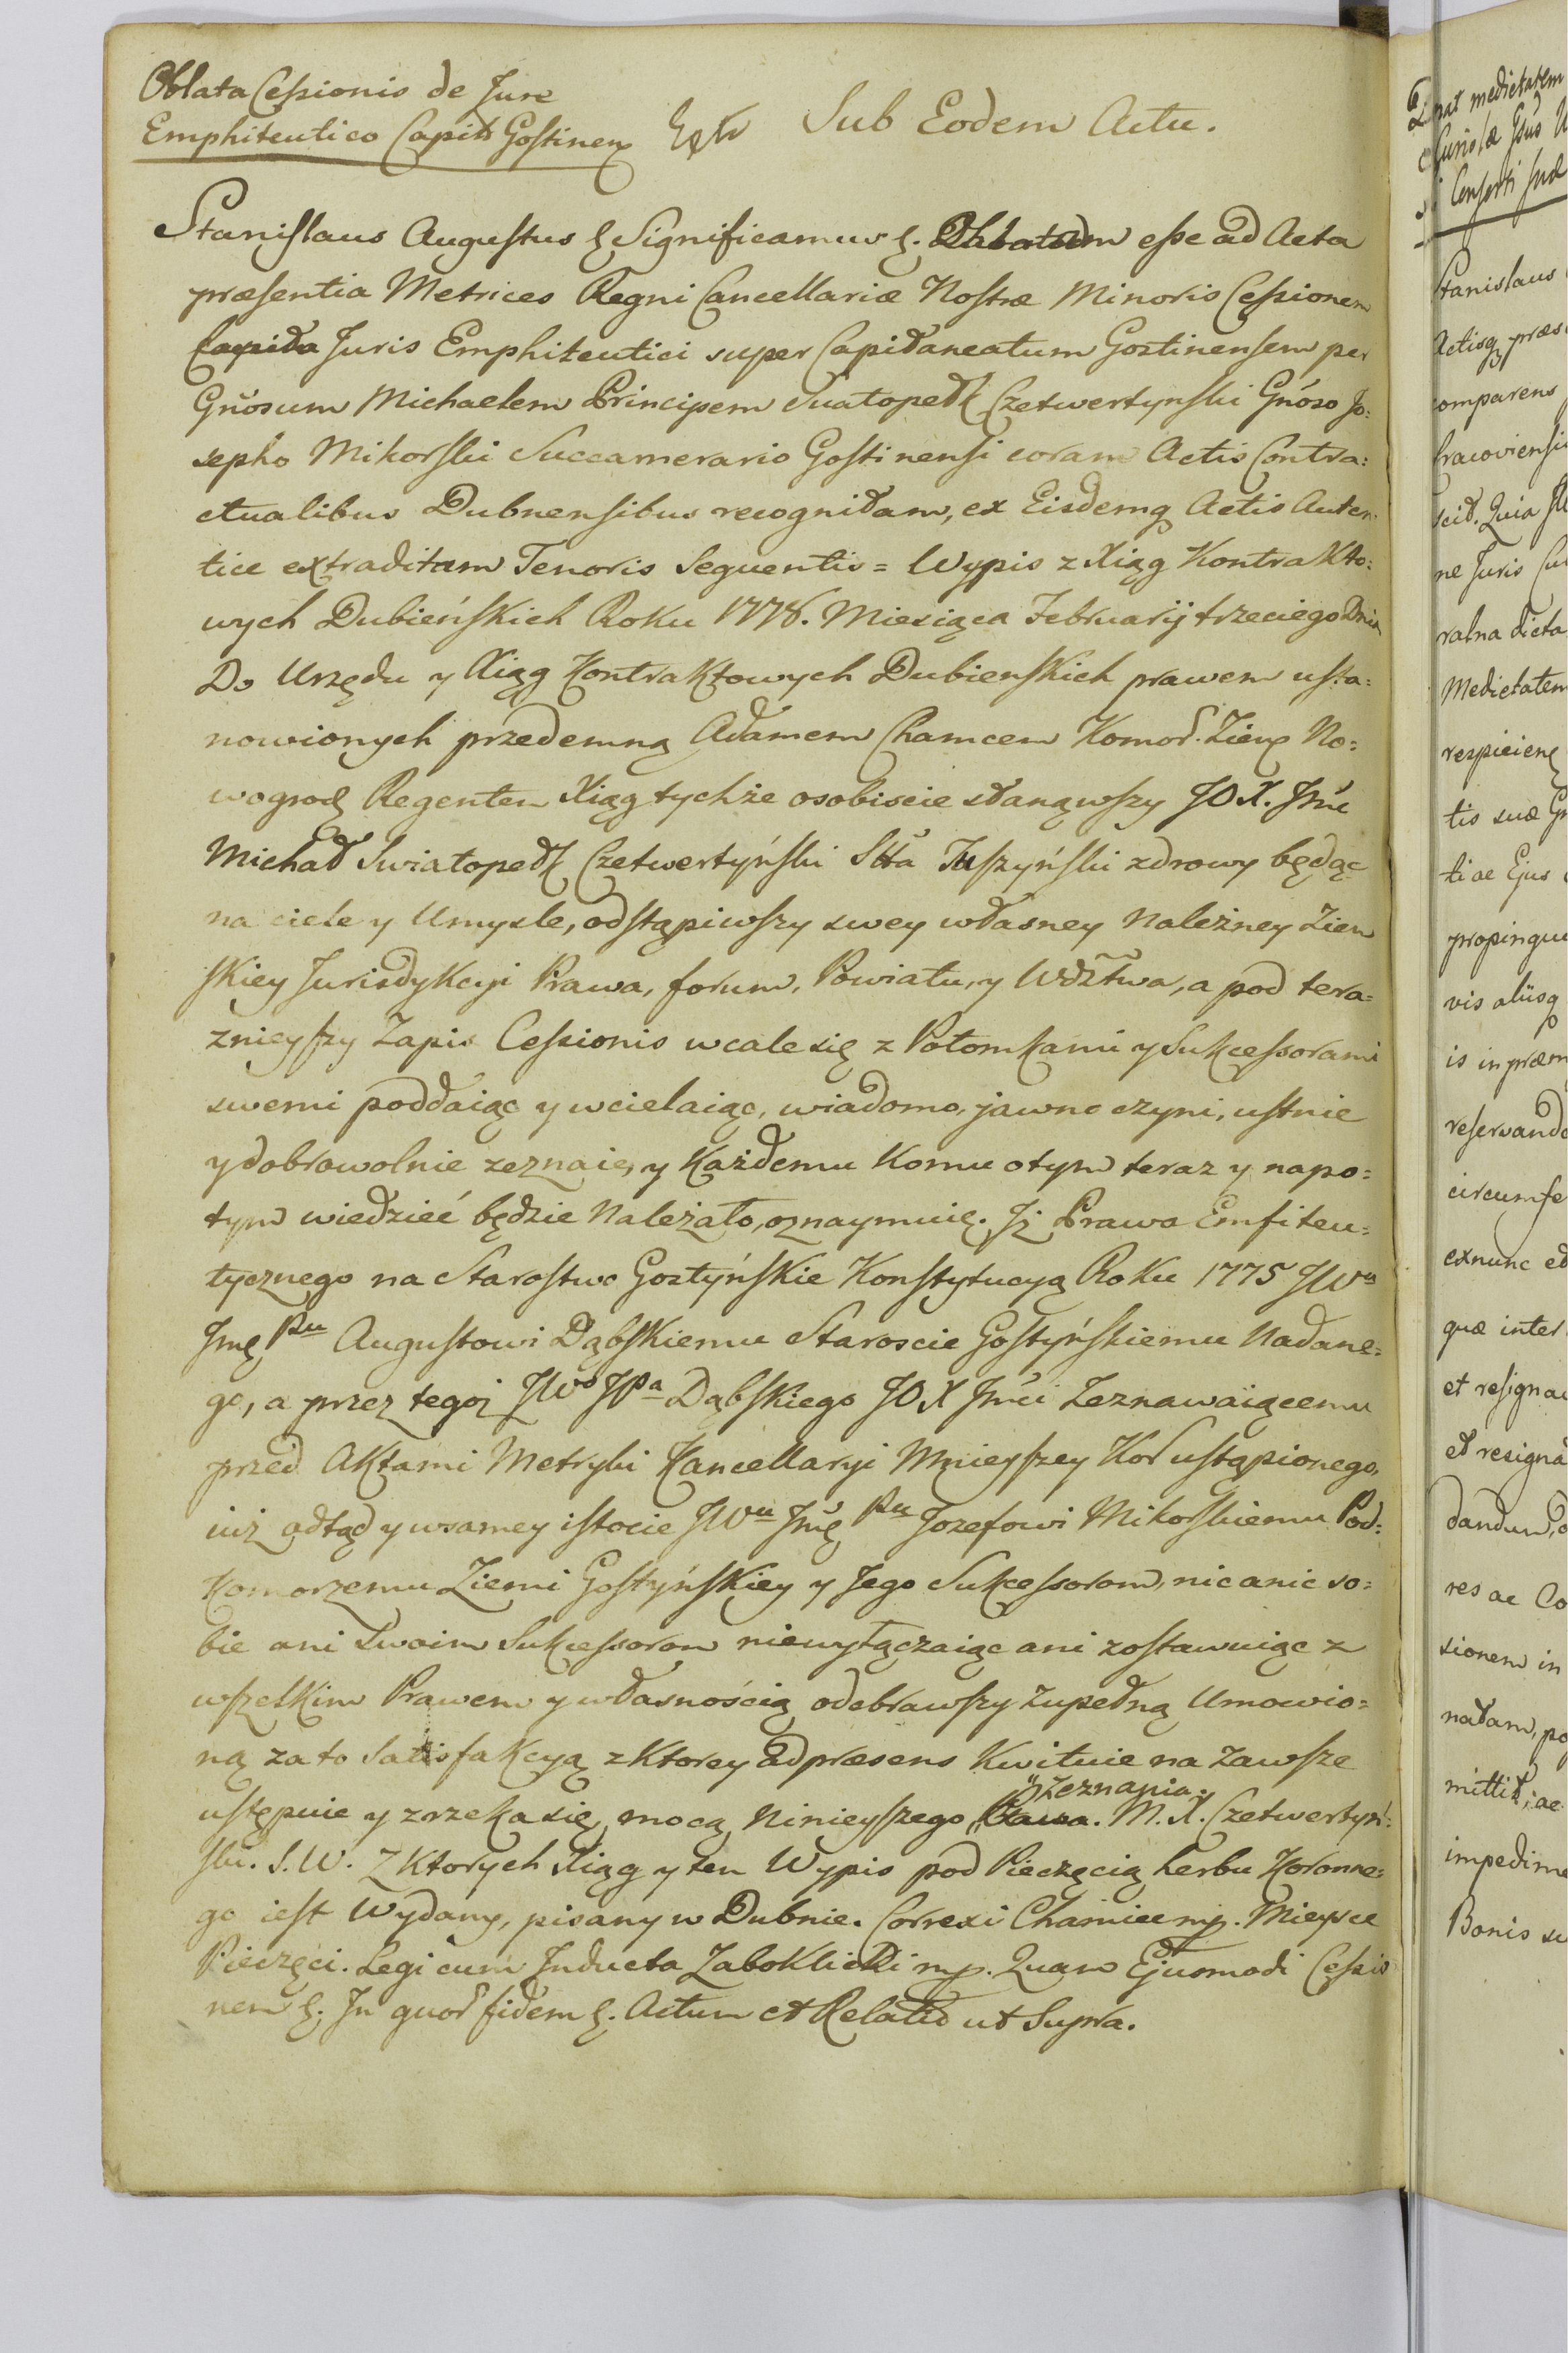 Oblata Cessionis de Jure
Emphiteutico Capit. Gostinen.
Sub Eodem Actu.
Stanislaus Augustus Significamus esse ad Acta
præsentia Metrices Regni Cancellariæ Nostræ Minoris Cessionem
Juris Emphiteutici super Capitaneatum Gostinensem per
Gn̄osum Michaelem Principem Swatopełk Czetwertynski Gn̄oso Jo=
sepho Mikorski Succamerario Gostinensi coram Actis Contra=
ctualibus Dubnensibus recognitam, ex Eisdemq Actis Auten
tice extraditam Tenoris Sequentis = Wypis z Xiąg Kontrakto=
wych Dubieńskich Roku 1778. Miesiąca Februarij trzeciego Dnia
Do Urzędu y Xiąg Kontraktowych Dubienskich prawem usta=
nowionych przedemną Adamem Chamcem Komor. Ziem No=
wogrod Regentem Xiąg tychże osobiscie stanąwszy JOX. Jmć
Michał Swiatopełk Czetwertyński Stta zdrowy będąc
na ciele y Umysle, odstąpiwszy swey własney Należney Ziem
skiey Jurisdykcyi Prawa, forum, Powiatu, y Wdztwa, a pod tera=
znieyszy Zapis Cessionis wcale się z Potomkami y Sukcessorami
swemi poddaiąc y wcielaiąc, wiadomo, jawno czyni, ustnie
y dobrowolnie zeznaie, y Każdemu Komu otym teraz y napo=
tym wiedzieć będzie Należało, oznaymuię. Jż Prawa Emfiteu=
tycznego na Starostwo Gostyńskie Konstytucyą Roku 1775 JWu
Jmę Pu Augustowi Dąbskiemu Staroscie Gostyńskiemu Nadane=
go, a przez tegoż JWo JPa Dąbskiego JOX Jmći Zeznawaiącemu
przed Aktami Metryki Kancellaryi Mnieyszey Kor ustąpionego,
iuż odtąd y wsamey istocie JWu Jmę Pu Jozefowi Mikorskiemu Pod=
Komorzemu Ziemi Gostyńskiey y Jego Sukcessorom, nic a nic so=
bie ani Swoim Sukcessorom niewyłączaiąc ani zostawuiąc z
wszelkim Prawem y własnością odebrawszy zupełną Umowio=
ną za to Satisfakcyą z Ktorey ad præsens Kwituie na zawsze
ustępuie y zrzeka się, mocą Ninieyszego Zeznania. M. X. Czetwertyń=
ski. S. W. Z Ktorych Xiąg y ten Wypis pod Pieczęcią herbu Koronne=
go iest Wydany, pisany w Dubnie. Correxi Chamiec mp. Mieysce
Pieczęci. Legi cum Inducta Zaboklicki mp. Quam Ejusmodi Cessio
nem In quor fidem Actum et Relatio ut Supra.
nat medietatem
Stanislaus
Actisq præs
comparens
Cracoviensi
scit. Quia
ne Juris
Medietatem
tis suæ
tiae Ejus
propinqu
vis aliisq
is in præm
reservand
circumfe
exnunc
quæ inter
et resigna
et resigna
dandum,
res ac Co
sionem in
mittit, ac
impedime
Bonis su